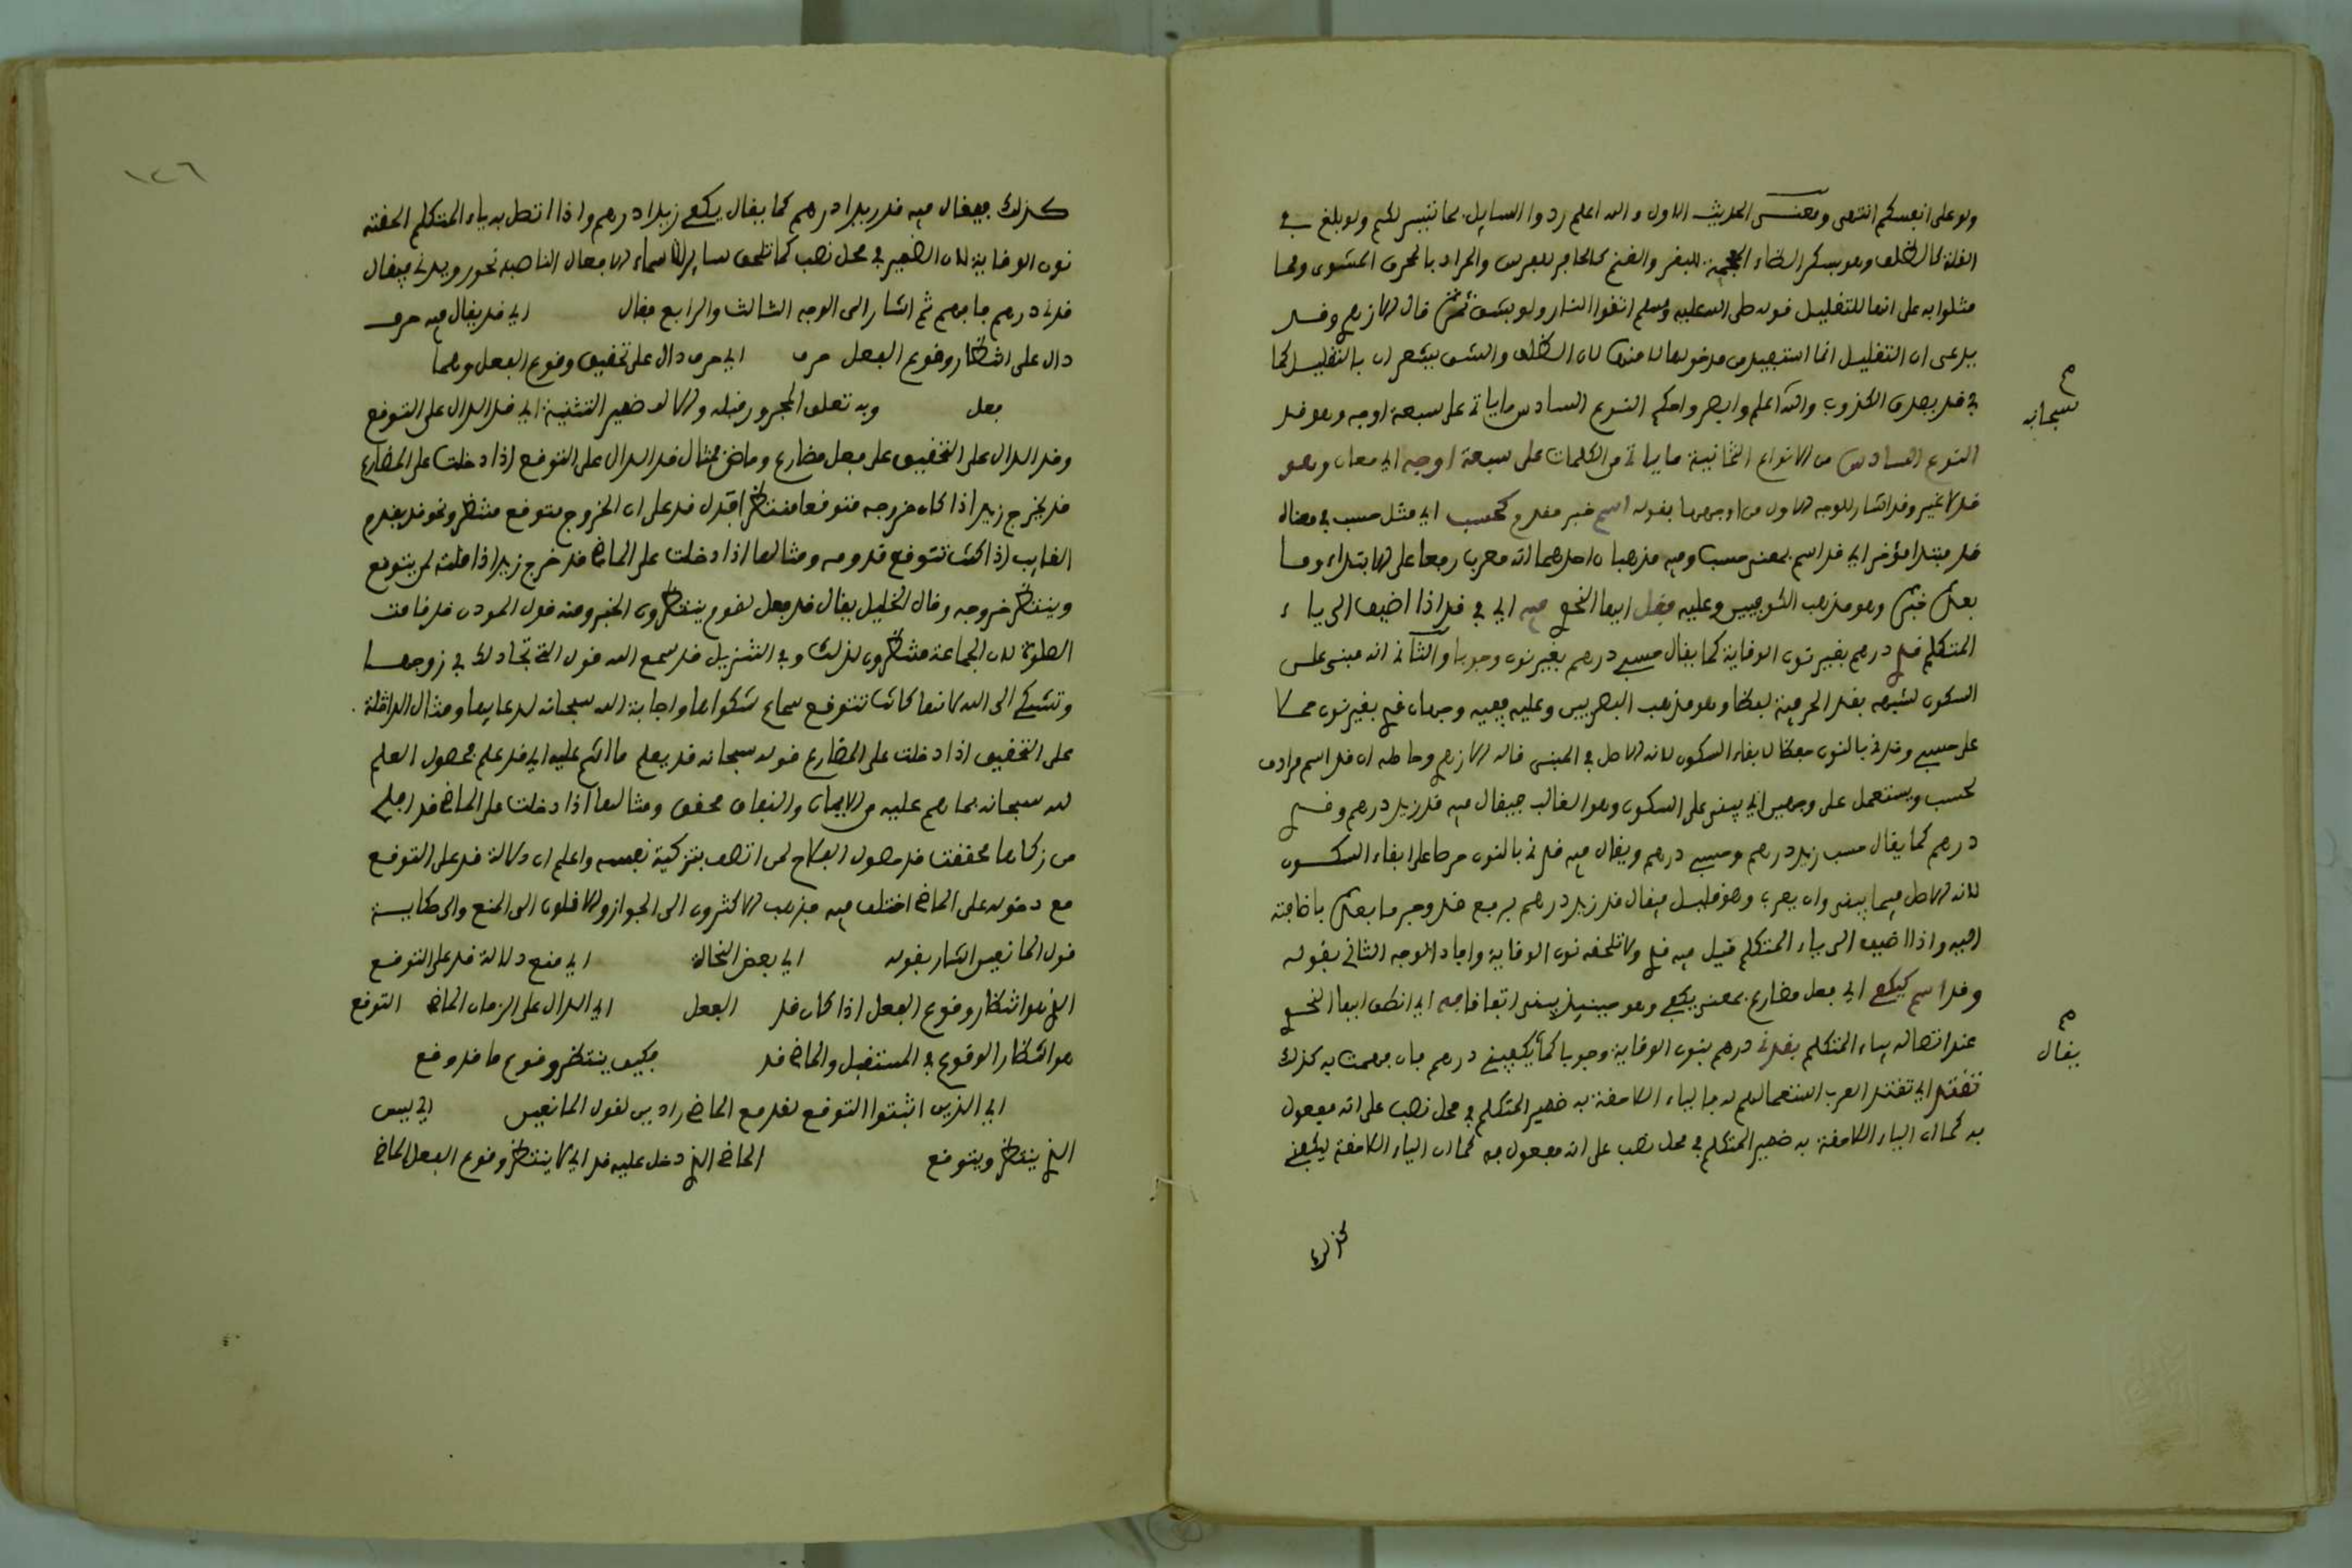 ولو على انفسكم انتهى ومعنى الحديث الاول والله اعلم ردوا السايل بما تيسر لكم ولو بلغ في
القلة كالظلف وهو بكسر الظاء المعجمة للبقر والغنم كالحافر للفرس والمراد بالمحرق المشوى ومما
مثلوا به على انها للتقليل قوله صلى الله عليه وسلم اتقوا النار ولو بشق تمرة قال الازهرى وقد
يدعى ان التقليل انما استفيد من مدخولها لا منها لان الظلف والشق يشعران بالتقليل كما
في قد يصدق الكذوب والله اعلم وابصر واحكم النوع السادس ما ياتي على سبعة اوجه وهو قد
م
سبحانه
النوع السادس من الانواع الثمانية ما ياتي من الكلمات على سبعة اوجه اي معان وهو
قد لا غير وقد اشار للوجه الاول من اوجهها بقوله اسم خبر مقدم كحسب اي مثل حسب في معناه
قد مبتدا مؤخر اي قد اسم بمعنى حسب وفيه مذهبان احدهما انه معرب رفعا على الابتداء وما
بعده خبره وهو مذهب الكوفيين وعليه فقل ايها النحوي فيه اي في قد اذا اضيف الى ياء
المتكلم قدي درهم بغير نون الوقاية كما يقال حسبي درهم بغير نون وجوبا والثاني انه مبني على
السكون لشبهه بقد الحرفية لفظا وهو مذهب البصريين وعليه ففيه وجهان قدي بغير نون حملا
على حسبي وقدني بالنون حفظا لابقاء السكون لانه الاصل في المبنى قاله الازهرى وحاصله ان قد اسم مرادف
لحسب ويستعمل على وجهين اي يبنى على السكون وهو الغالب فيقال فيه قد زيد درهم وقدي
درهم كما يقال حسب زيد درهم وحسبي درهم ويقال فيه قدني بالنون حرصا على ابقاء السكون
لانه الاصل فيما يبنى وان يعرب وهو قليل فيقال قد زيد درهم برفع قد وجر ما بعده باضافته
اليه واذا اضيف الى ياء المتكلم قيل فيه قدي ولا تلحقه نون الوقاية وافاد الوجه الثاني بقوله
وقد اسم كيكفي اي فعل مضارع بمعنى يكفي وهو حينئذ يبنى اتفاقا فه اي انطق ايها النحوي
عند اتصاله بياء المتكلم بقدني درهم بنون الوقاية وجوبا كما يكفيني درهم فان فهمت به كذلك
م
يقال
تقتد اي تقتد العرب استعمالهم له فالياء اللاحقة به ضمير المتكلم في محل نصب على انه مفعول
به كما ان الياء اللاحقة به ضمير المتكلم في محل نصب على انه مفعول به كما ان الياء اللاحقة ليكفني
كذلك
١٢٦
كذلك فيقال فيه قد زيدا درهم كما يقال يكفي زيدا درهم واذا اتصل به ياء المتكلم الحقته
نون الوقاية لان الضمير في محل نصب كما تلحق ساير الاسماء الافعال الناصبة نحو رويدني فيقال
قدني درهم فافهم ثم اشار الى الوجه الثالث والرابع فقال اي قد يقال فيه حرف
دال على انتظار وقوع الفعل حرف اي حرف دال على تحقيق وقوع الفعل وهما
فعل وبه تعلق المجرور قبله والالف ضمير التثنية اي قد الدال على التوقع
وقد الدال على التحقيق على فعل مضارع وماض فمثال قد الدال على التوقع اذا دخلت على المضارع
قد يخرج زيد اذا كان خروجه متوقعا منتظرا فتدل قد على ان الخروج متوقع منتظر ونحو قد يقدم
الغايب اذا كنت تتوقع قدومه ومثالها اذا دخلت على الماضي قد خرج زيد اذا قلته لمن يتوقع
وينتظر خروجه وقال الخليل يقال قد فعل لقوم ينتظرون الخبر ومنه قول المودن قد قامت
الصلوة لان الجماعة منتظرون لذلك وفي التنزيل قد سمع الله قول التي تجادلك في زوجها
وتشتكي الى الله لانها كانت تتوقع سماع شكواها واجابة الله سبحانه لدعايها ومثال الداخلة
على التحقيق اذا دخلت على المضارع قوله سبحانه قد يعلم ما انتم عليه اي قد علم فحصول العلم
لله سبحانه بما هم عليه من الايمان والنفاق محقق ومثالها اذا دخلت على الماضي قد افلح
من زكاها محققت قد حصول الفلاح لمن اتصف بتزكية نفسه واعلم ان دلالة قد على التوقع
مع دخوله على الماضي اختلف فيه فذهب الاكثرون الى الجواز والاقلون الى المنع والى حكاية
قول المانعين اشار بقوله اي بعض النحاة اي منع دلالة قد على التوقع
الذي هو انتظار وقوع الفعل اذا كان قد الفعل اي الدال على الزمان الماضي التوقع
هو انتظار الوقوع في المستقبل والماضي قد فكيف ينتظر وقوع ما قد وقع
اي الذين اثبتوا التوقع لقد مع الماضي رادين لقول المانعين اي ليس
الذي ينتظر ويتوقع الماضي الذي دخل عليه قد اي لا ينتظر وقوع الفعل الماضي